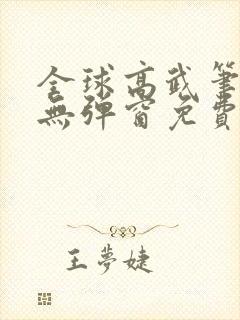 全球高武筆
無彈窗免費
王夢婕